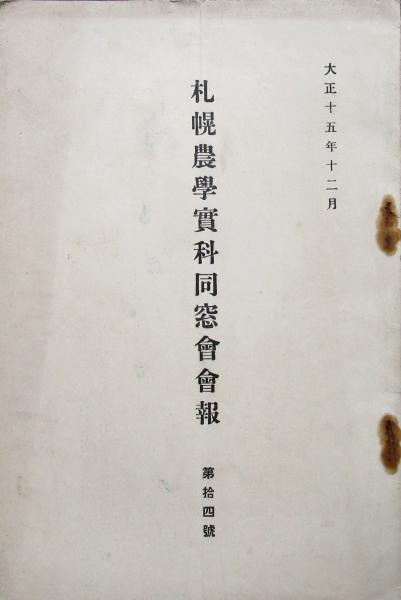 大正十五年十二月
札幌農學實科同窓會會報
第拾四號